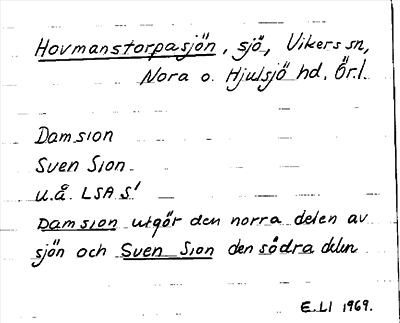 Hovmanstorpasjön, sjö, Vikers sn,
Nora o. Hjulsjö hd, Ör.l.
Damsion
Sven Sion
u.å. LSA S'
Damsion utgör den norra delen av
sjön och Sven Sion den södra delen
E.LI 1969.